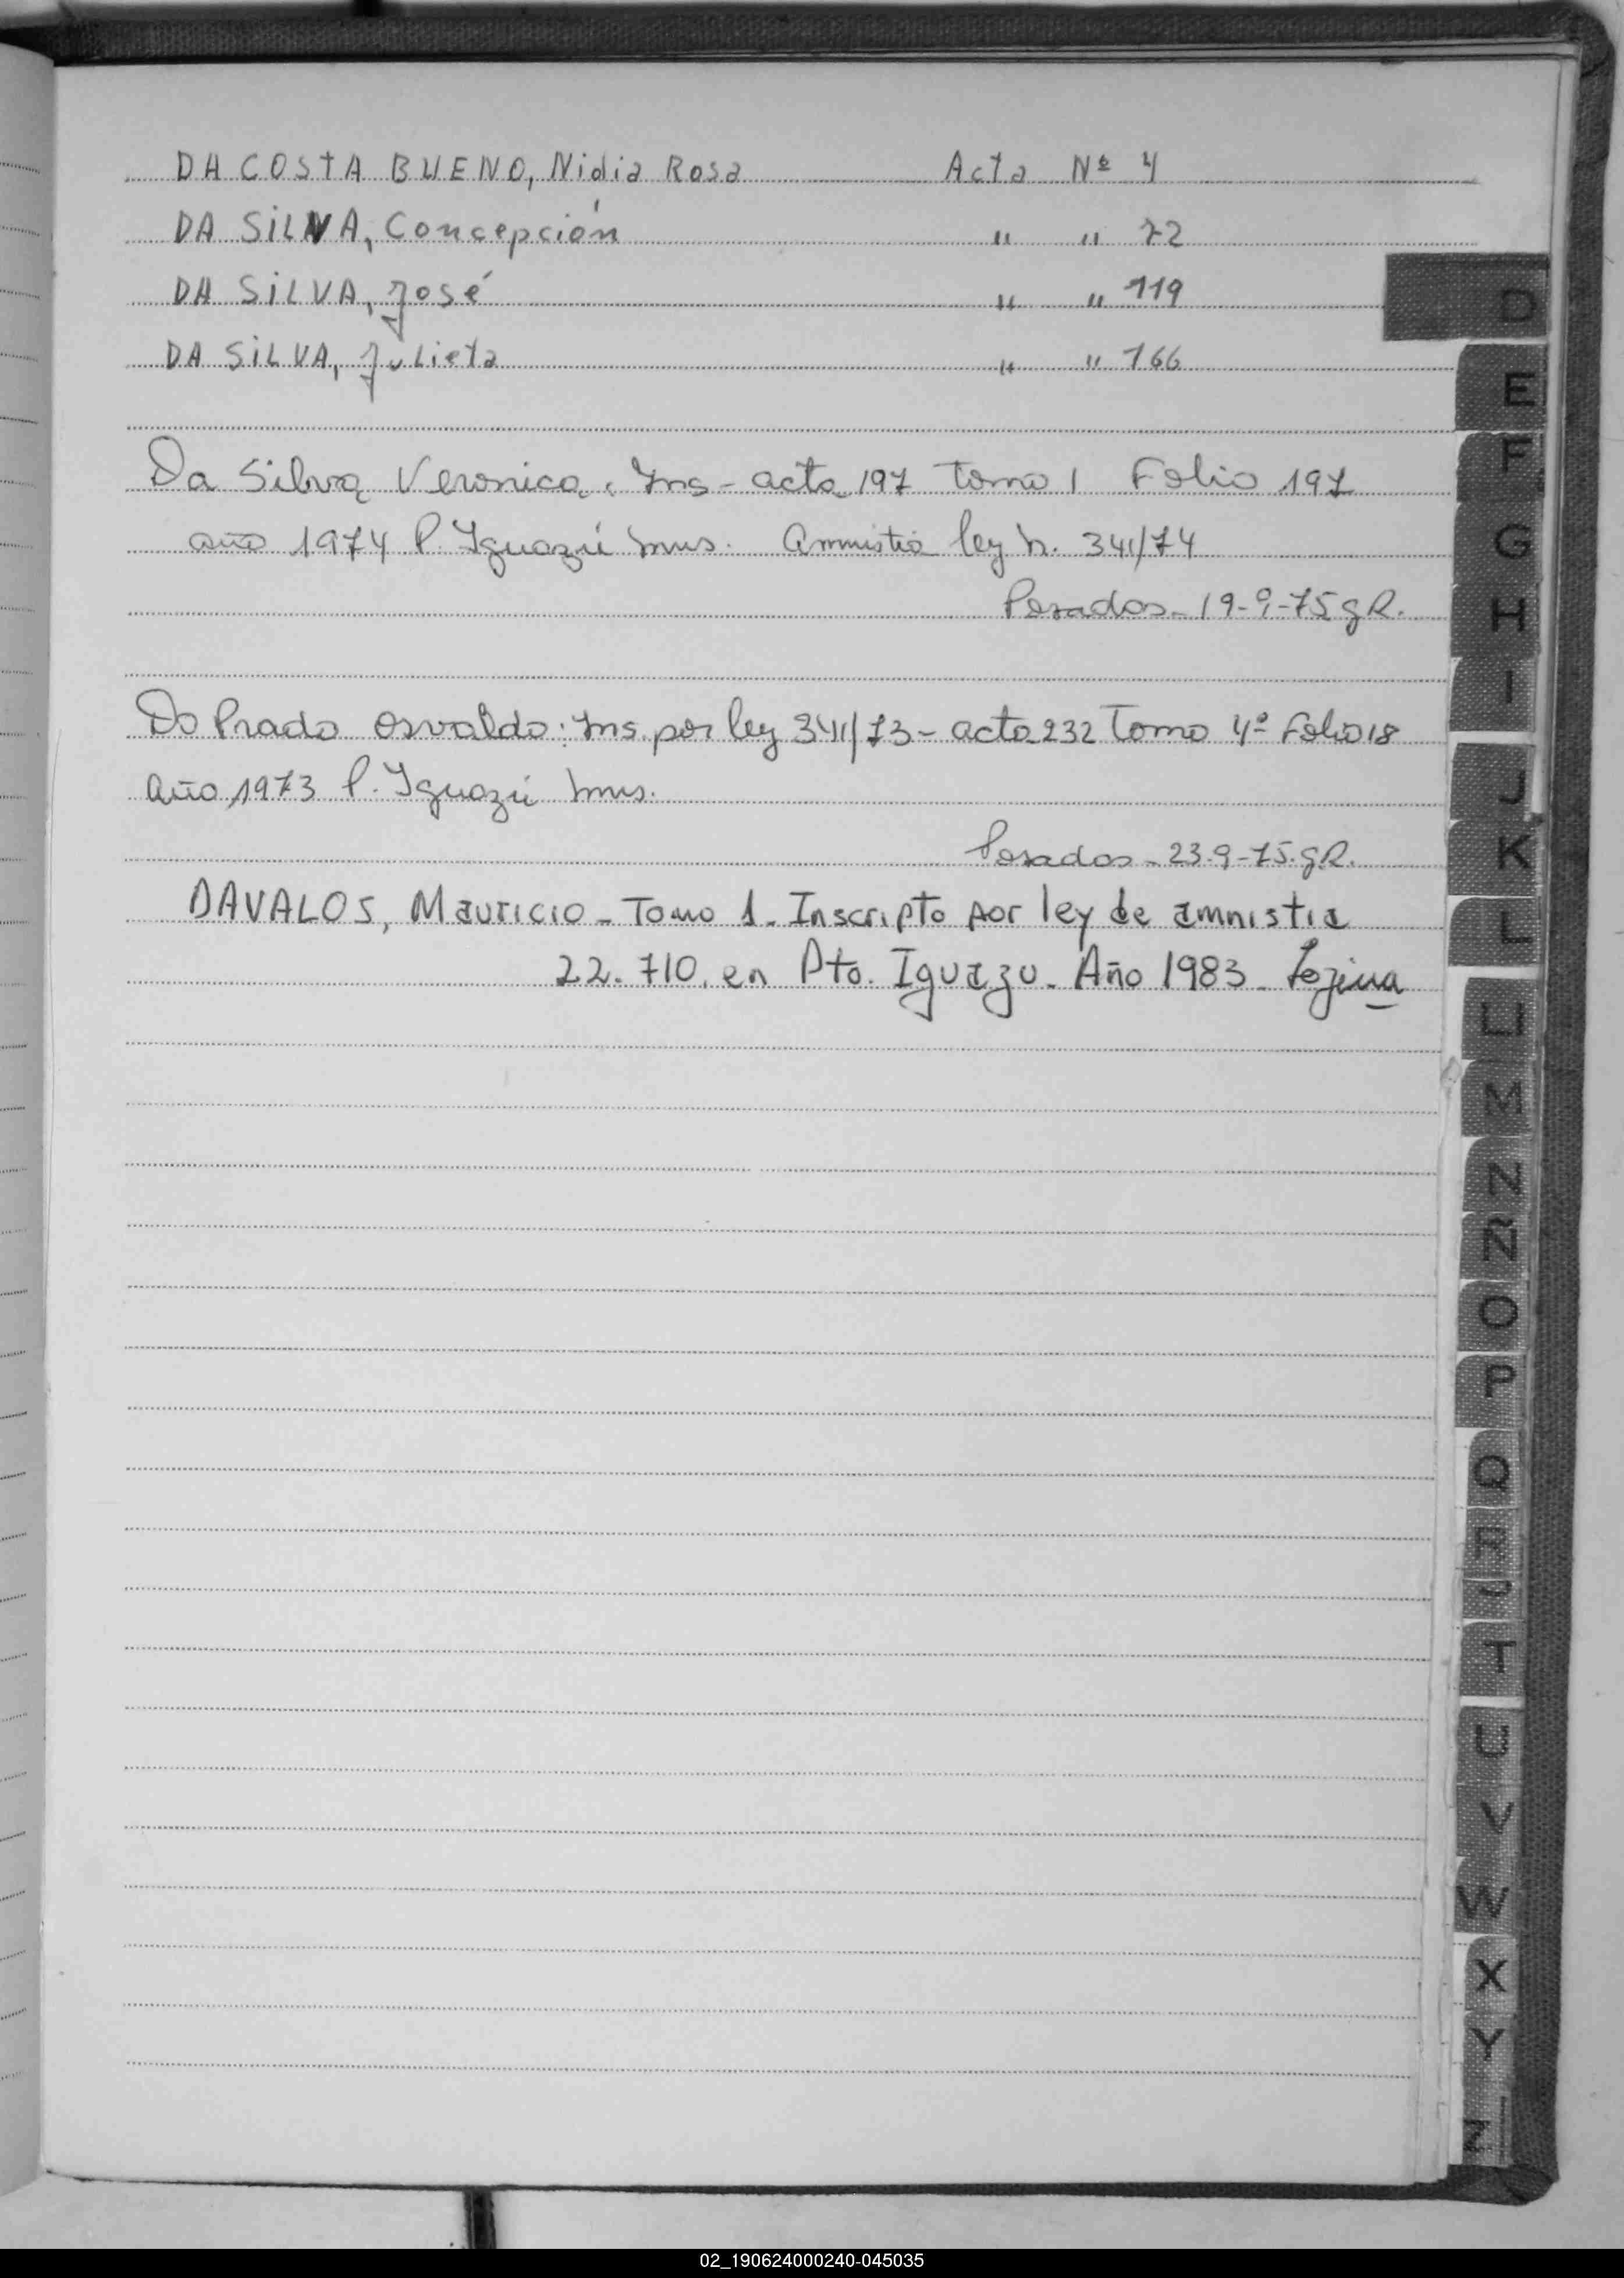 DA COSTA BUENO, Nidia Rosa Acta Nº 4
DA SILVA, Concepción " " 72
DA SILVA, José " " 119
DA SILVA, Julieta " " 166
Da Silva, Veronica, Ins- acta 197 Tomo 1 Folio 197
año 1974 P. Iguazú Mns. Amnistia ley n. 341/74
Posadas- 19-9-75 g R.
Do Prado Osvaldo: Ins. por ley 341/73- acta 232 Tomo 4º Folio 18
Año 1973 P. Iguazú Mns.
Posadas- 23-9-75. g R.
DAVALOS, Mauricio- Tomo 1- Inscripto por ley de amnistia
22.710. en Pto. Iguazu. Año 1983-
D
E
F
G
H
I
J
K
L
LL
M
N
Ñ
O
P
Q
R
T
U
V
W
X
Y
Z
02_190624000240-045035